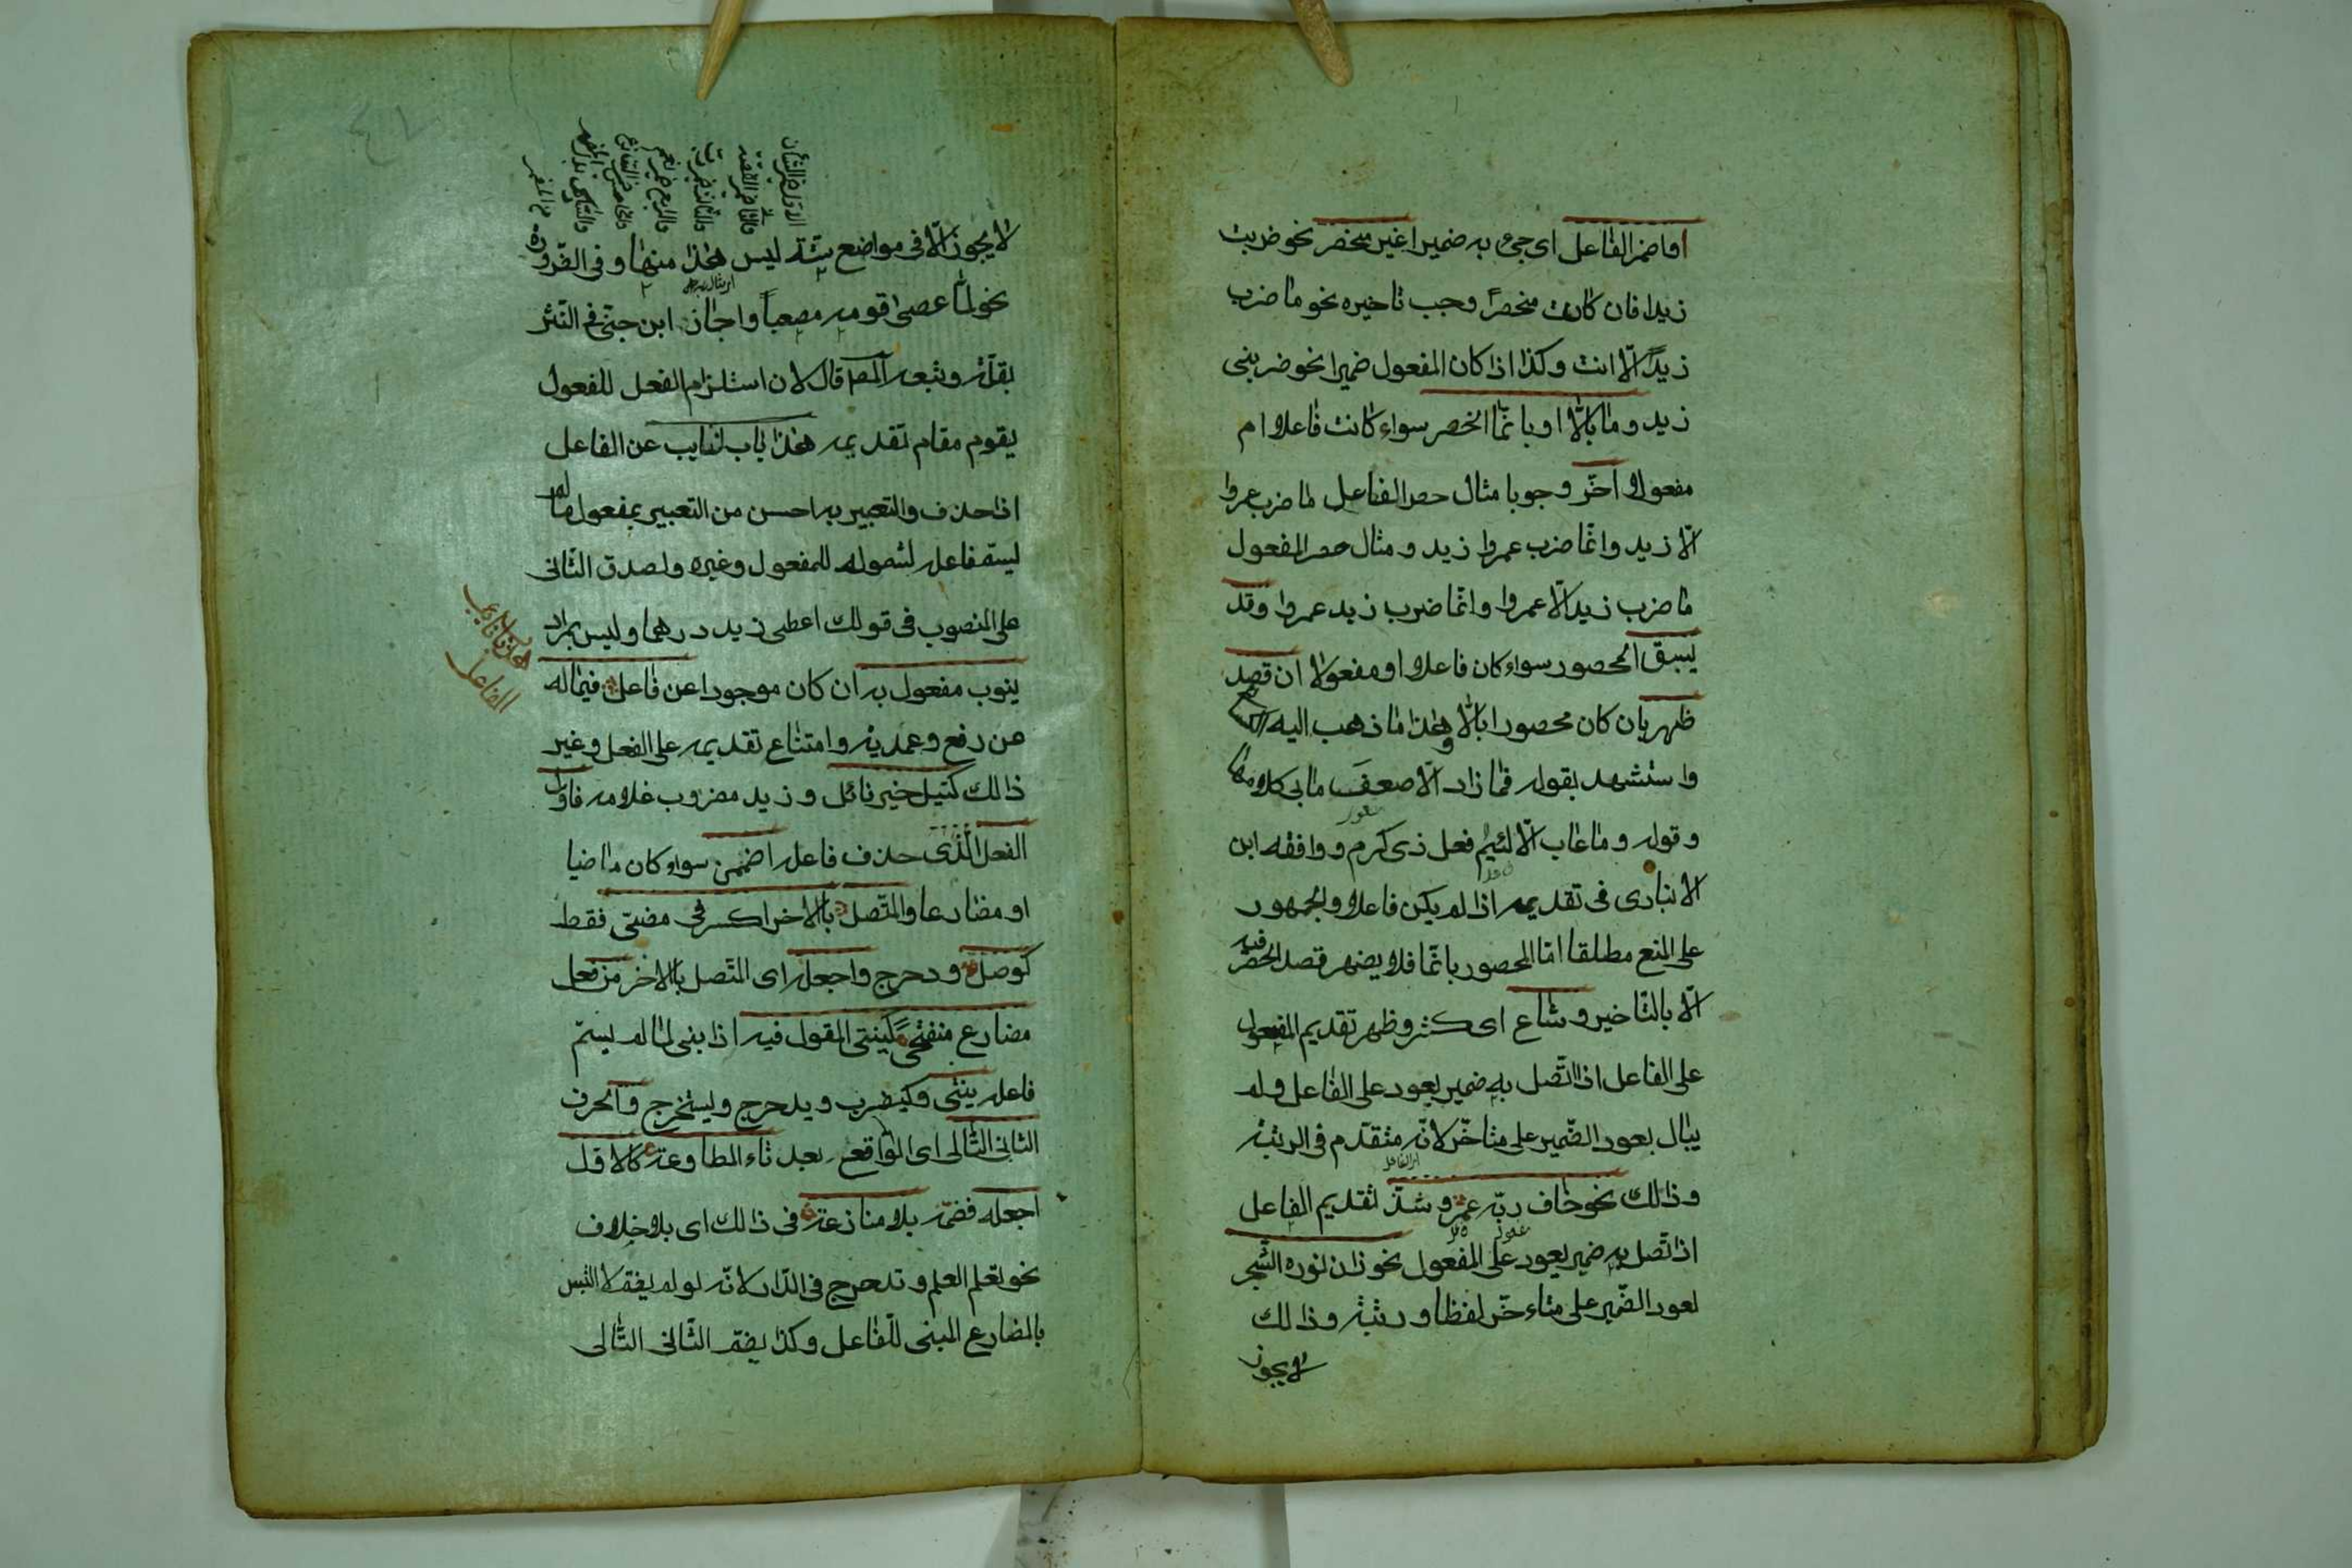 او اضمر الفاعل اى جىء به ضميرا غير منحصر نحو ضربت
زيدا فان كان منحصرا وجب تاخيره نحو ما ضرب
زيدًا الّا انت وكذا اذا كان المفعول ضميرا نحو ضربنى
زيد وما بالّا او بانّما انحصر سواء كانت فاعلا ام
مفعولا اخّر وجوبا مثال حصر الفاعل ما ضرب عمروا
الّا زيد وانّما ضرب عمروا زيد ومثال حصر المفعول
ما ضرب زيد الّا عمروا وانّما ضرب زيد عمروا وقد
يسبق المحصور سواء كان فاعلا او مفعولا ان قصد
ظهر بان كان محصورا بالّا وهذا ما ذهب اليه
واستشهد بقوله فما زاد الّا ضعف ما بى كلامها
وقوله وما عاب الّا لئيم فعل ذى كرم ووافقه ابن
الانبارى فى تقديمه اذا لم يكن فاعلا والجمهور
على المنع مطلقا امّا المحصور بانّما فلا يظهر قصد الحصر فيه
الّا بالتّاخير وشاع اى كثر وظهر تقديم المفعول
على الفاعل اذا اتّصل به ضمير يعود على الفاعل ولم
يبال بعود الضّمير على متاخّر لانّه متقدّم فى الرتبة
وذالك نحو خاف ربّه عمر وشذّ تقديم الفاعل
اى الفاعل
اذا تّصل به ضمير يعود على المفعول نحو زان نوره الشّجر
لعود الضّمير على متاءخّر لفظا ورتبة وذالك
لا يجوز
الاوّل ضمير الشّأن
والثانى ضمير القصّة
لا يجوز الّا فى مواضع ستّة ليس هذا منها وفى الضّرورة
نحو لمّا عصى قومه مصعباً واجاز ابن جنّى فى النّثر
بقلّة وتبعه المصـ قال لان استلزام الفعل للمفعول
يقوم مقام تقديمه هذا باب النايب عن الفاعل
اذا حذف والتعبير به احسن من التعبير بمفعول ما لم
يسمّ فاعله لشموله للمفعول وغيره ولصدق الثّانى
على المنصوب فى قولك اعطى زيد درهما وليس بمراد
هذا باب نايب الفاعل
ينوب مفعول به ان كان موجودا عن فاعل فيما له
من رفع وعمديّة وامتناع تقديمه على الفعل وغير
ذالك كنيل خير نائل وزيد مضروب غلامه فاوّل
الفعل الّذى حذف فاعله اضممن سواء كان ماضيا
او مضارعا والمتّصل بالاخر اكسر فى مضىّ فقط
كوصل ودحرج واجعله اى المتّصل بالاخر من فعل
مضارع منفتحًا كينتحى المقول فيه اذا بنى لما لم يسمّ
فاعله ينتحى وكيضرب ويدحرج ويستخرج والحرف
الثّانى التّالى اى الواقع بعد تاء المطاوعة كالاوّل
اجعله فضمّه بلا منازعة فى ذالك اى بلا خلاف
نحو تعلّم العلم وتدحرج فى الدّار لانّه لو لم يضمّ لالتبس
بالمضارع المبنى للفاعل وكذا يضمّ الثّانى التّالى